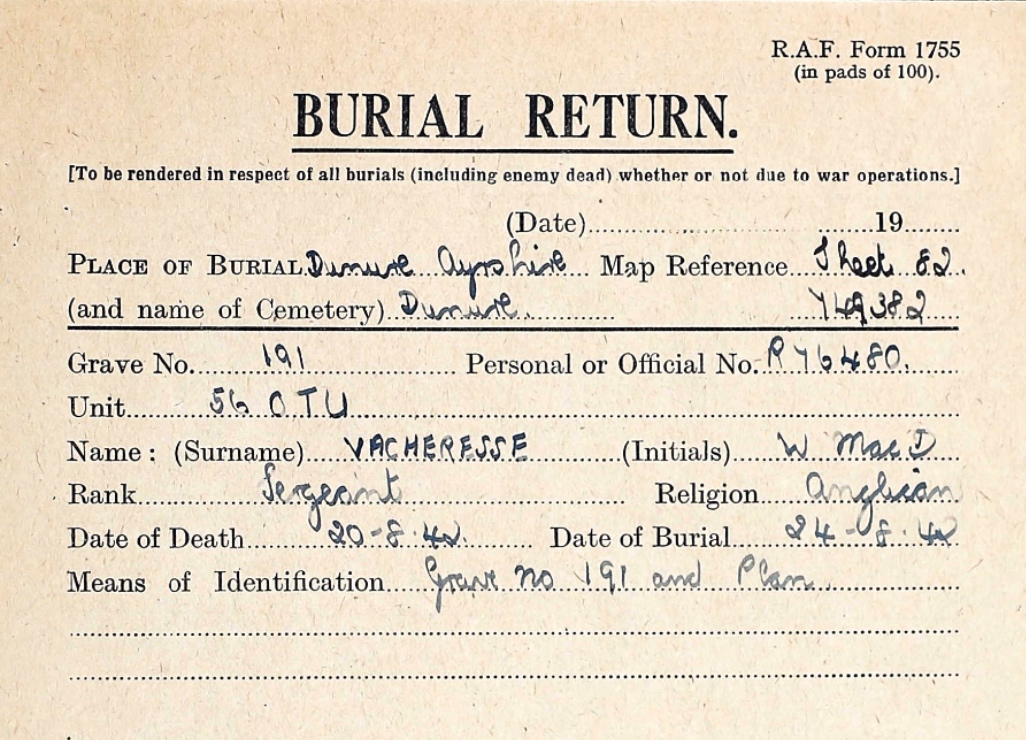 R.A.F. Form 1755
(in pads of 100).
BURIAL RETURN.
[To be rendered in respect of all burials (including enemy dead) whether or not due to war operations.]
(Date)....................19........
PLACE OF BURIAL Dunure Ayrshire Map Reference Sheet 82.
(and name of Cemetery) Dunure. 749382
Grave No. 191 Personal or Official No. R 76480.
Unit 56 OTU
Name: (Surname) VACHERESSE (Initials) W Mac D
Rank Sergeant Religion Anglican
Date of Death 20-8-42. Date of Burial 24-8-42
Means of Identification Grave no 191 and Plan.